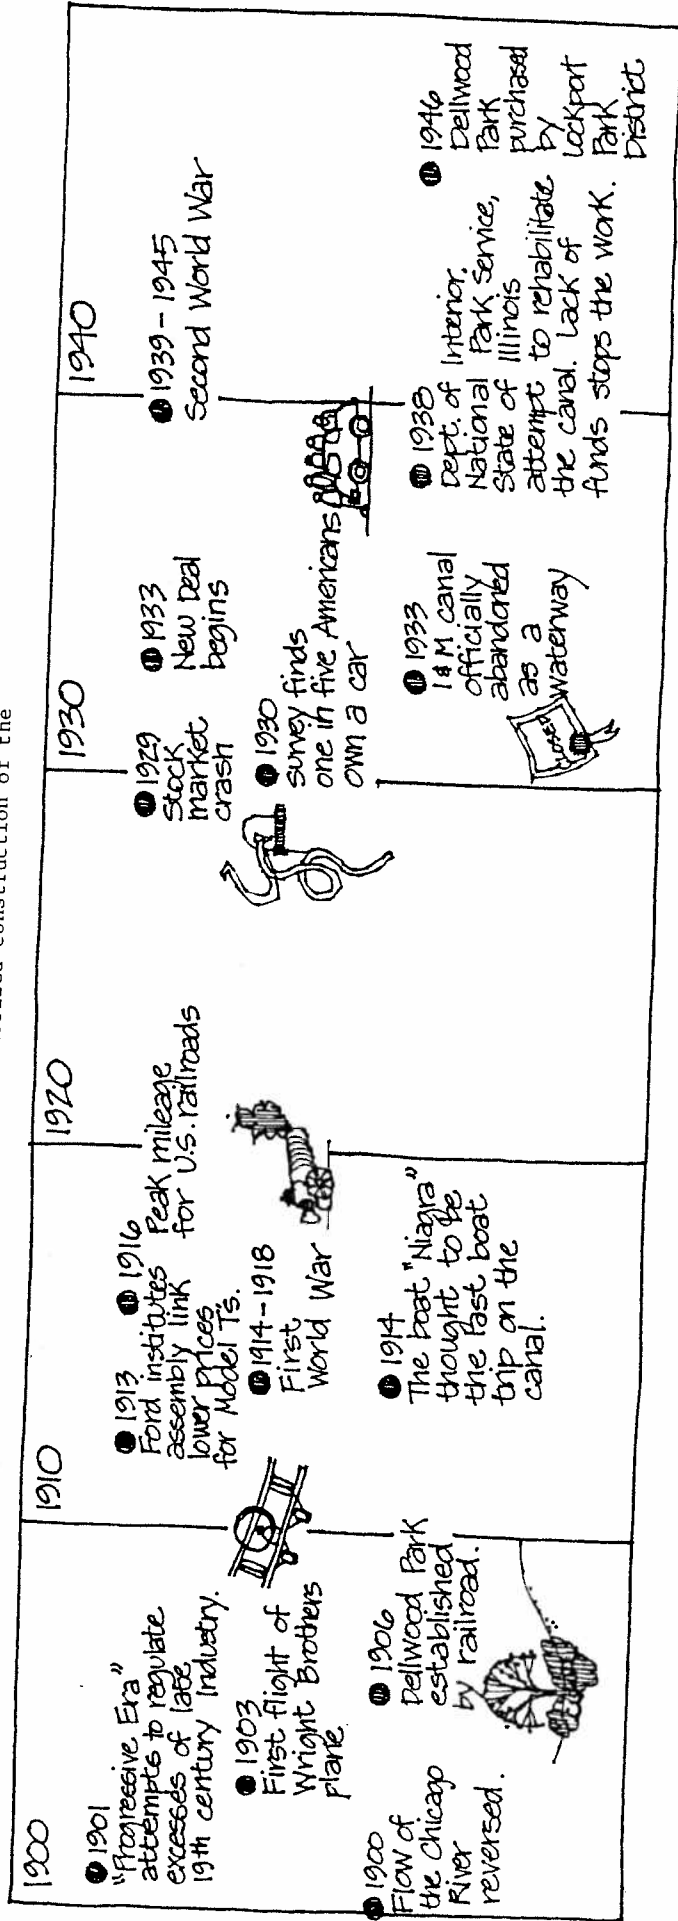 construction of the
1900
1901
"Progressive Era"
attempts to regulate
excesses of late
19th century Industry.
1903
First flight of
Wright Brothers
plane
1900
Flow of
the Chicago
River
reversed.
1906
Dellwood Park
established
by railroad.
1910
1913
Ford institutes
assembly link
lower prices
for Model T's.
1916
Peak mileage
for U.S. railroads
1914-1918
First
World War
1914
The boat "Niagra"
thought to be
the last boat
trip on the
canal.
1920
1930
1929
Stock
market
crash
1933
New Deal
begins
1930
survey finds
one in five Americans
own a car
1933
I & M canal
officially
abandoned
as a
waterway
CLOSED
1938
Dept. of Interior.
National Park Service,
State of Illinois
attempt to rehabilitate
the canal. Lack of
funds stops the work.
1940
1939-1945
Second World War
1946
Dellwood
Park
purchased
by
Lockport
Park
District